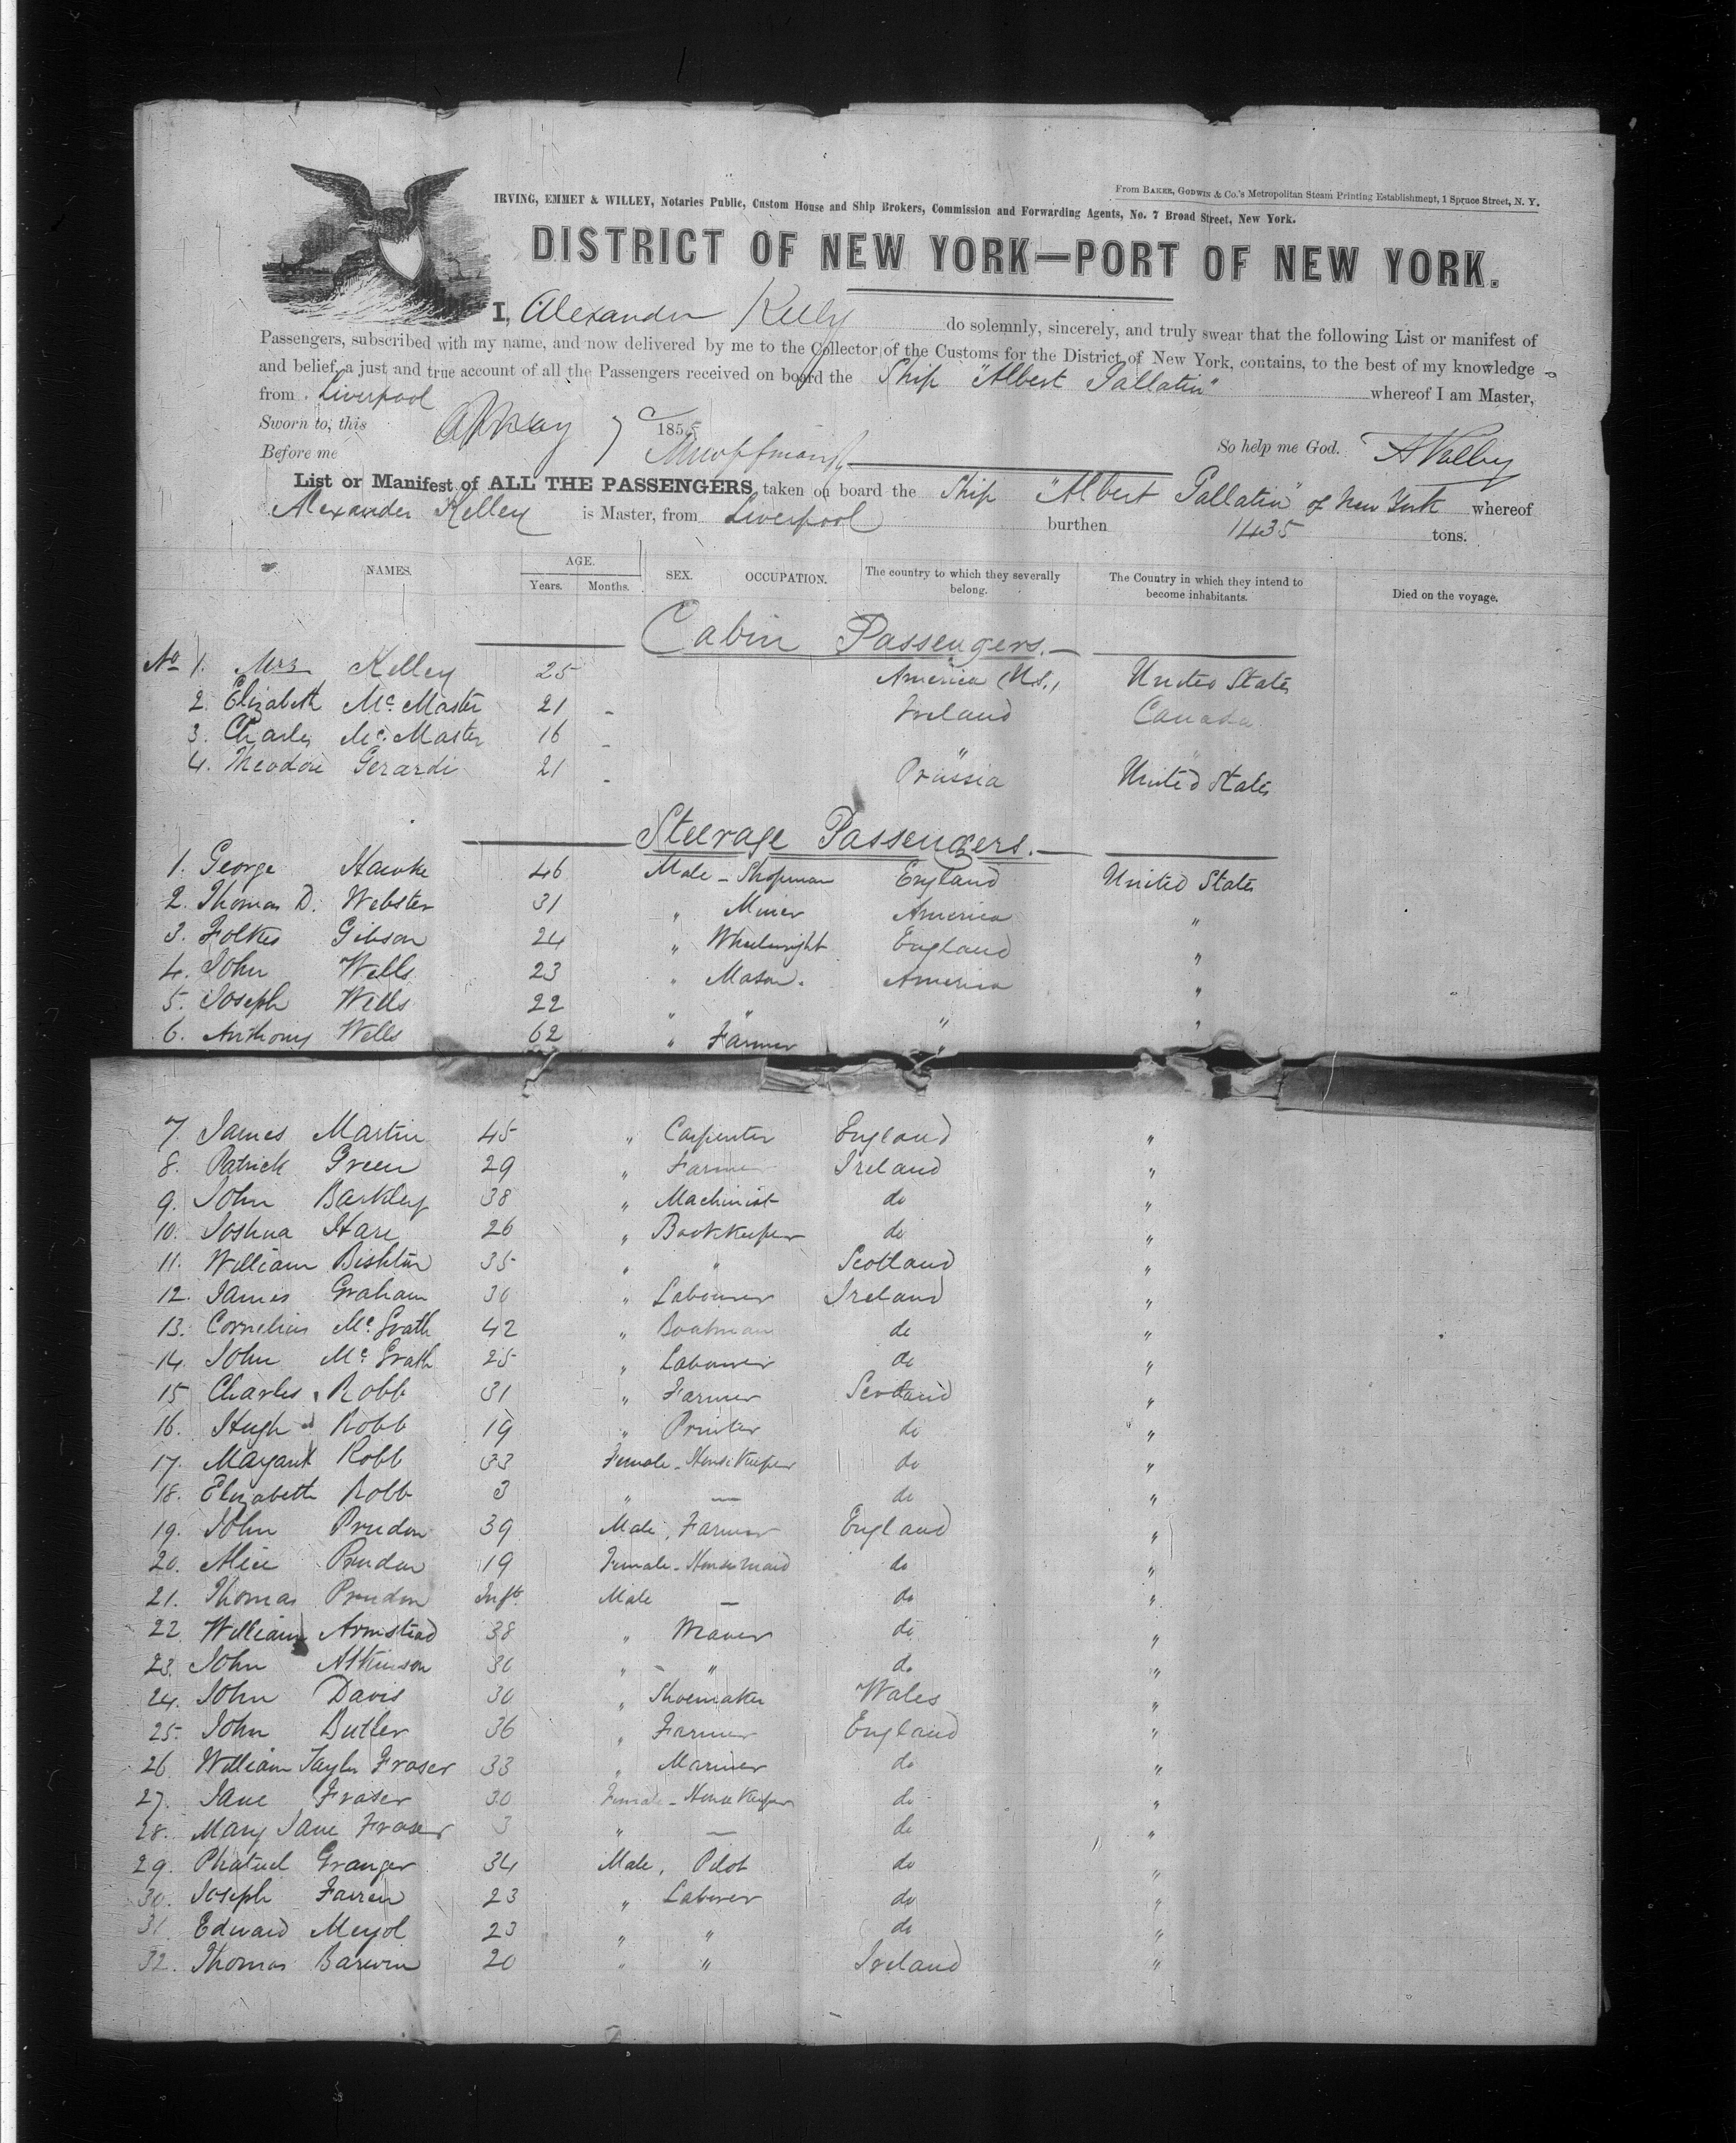 From BAKER, GODWIN & CO.'s Metropolitan Steam Printing Establishment, 1 Spruce Street, N. Y.
IRVING, EMMET & WILLEY, Notaries Public, Custom House and Ship Brokers, Commission and Forwarding Agents, No. 7 Broad Street, New York.
DISTRICT OF NEW YORK—PORT OF NEW YORK.
I, Alexander Kelly do solemnly, sincerely, and truly swear that the following List or manifest of
Passengers, subscribed with my name, and now delivered by me to the Collector of the Customs for the District of New York, contains, to the best of my knowledge
and belief, a just and true account of all the Passengers received on board the Ship "Albert Gallatin"
from Liverpool whereof I am Master,
Sworn to, this May 7 1855
Before me So help me God. A Kelley
List or Manifest of ALL THE PASSENGERS taken on board the Ship "Albert Gallatin" of New York whereof
Alexander Kelley is Master, from Liverpool burthen 1435 tons.
NAMES. AGE. Years. Months. SEX. OCCUPATION. The country to which they severally belong. The Country in which they intend to become inhabitants. Died on the voyage.
Cabin Passengers.
No 1. Mrs Kelley 25 America (U.S.) United States
2. Elizabeth Mc.Master 21 - Ireland Canada
3. Charles Mc.Master 16 - " "
4. Theodore Gerardi 21 - Prussia United States
Steerage Passengers.
1. George Hawke 46 Male - Shopman England United States
2. Thomas D. Webster 31 " Miner America "
3. Folkes Gibson 24 " Wheelwright England "
4. John Wells 23 " Mason. America "
5. Joseph Wells 22 " " " "
6. Anthony Wells 62 " Farmer " "
7. James Martin 45 " Carpenter England "
8. Patrick Green 29 " Farmer Ireland "
9. John Barkley 38 " Machinist do "
10. Joshua Hare 26 " Bookkeeper do "
11. William 35 " " Scotland "
12. James Graham 30 " Labourer Ireland "
13. Cornelius Mc.Grath 42 " Boatman do "
14. John Mc.Grath 25 " Labourer do "
15 Charles Robb 31 " Farmer Scotland "
16. Hugh Robb 19 " Printer do "
17. Margaret Robb 33 Female - House Keeper do "
18. Elizabeth Robb 3 " — do "
19. John Prudon 39 Male, Farmer England "
20. Alice Prudon 19 Female - Housemaid do "
21. Thomas Prudon Inft. Male — do "
22. William Armstead 38 " Weaver do "
23. John Atkinson 30 " - " do "
24. John Davis 30 " Shoemaker Wales "
25. John Butler 36 " Farmer England "
26. William Taylor Fraser 33 " Mariner do "
27. Jane Fraser 30 Female - House Keeper do "
28. Mary Jane Fraser 3 " — do "
29. Granger 34 Male, Pilot do "
30. Joseph 23 " Laborer do "
31. Edward 23 " " do "
32. Thomas Barwin 20 " " Ireland "